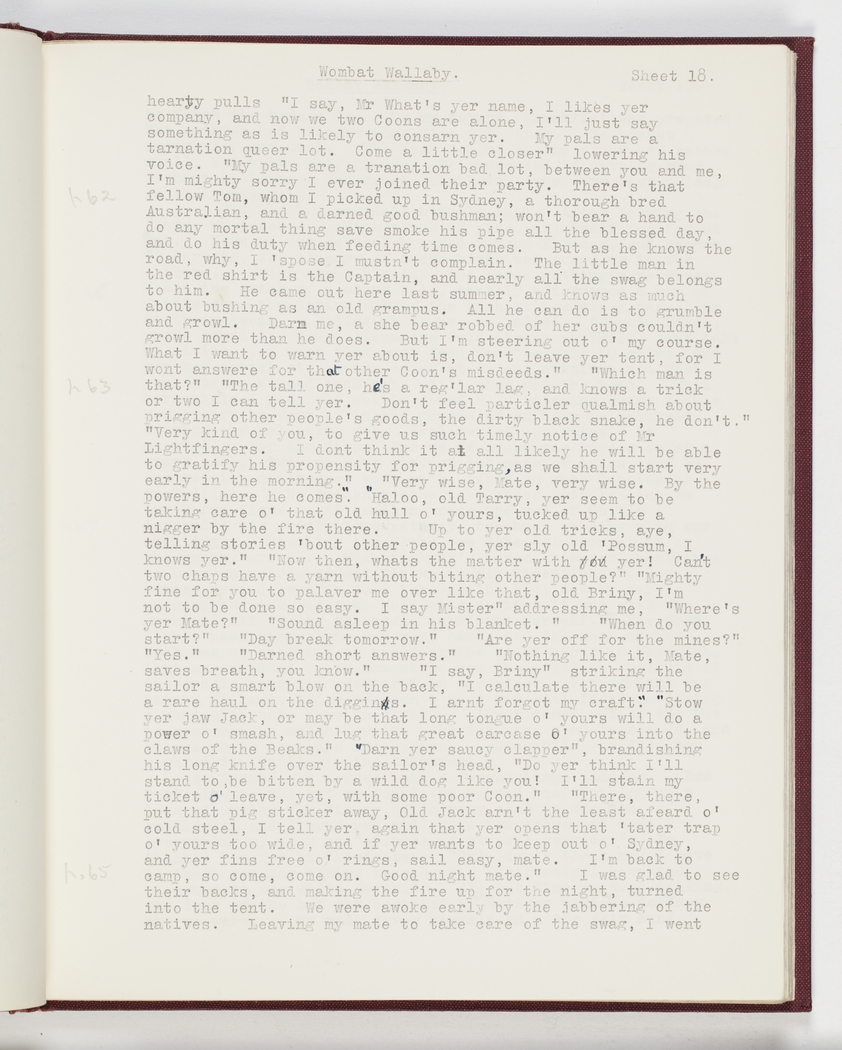 Wombat Wallaby. Sheet 18.
hearty pulls "I say, Mr What's yer name, I likes yer
company, and now we two Coons are alone, I'll just say
something as is likely to consarn yer. My pals are a
tarnation queer lot. Come a little closer" lowering his
voice. "My pals are a tranation bad lot, between you and me,
I'm mighty sorry I ever joined their party. There's that
p 62
fellow Tom, whom I picked up in Sydney, a thorough bred
Australian, and a darned good bushman; won't bear a hand to
do any mortal thing save smoke his pipe all the blessed day,
and do his duty when feeding time comes. But as he knows the
road, why, I 'spose I mustn't complain. The little man in
the red shirt is the Captain, and nearly all the swag belongs
to him. He came out here last summer, and knows as much
about bushing as an old grampus. All he can do is to grumble
and growl. Darn me, a she bear robbed of her cubs couldn't
growl more than he does. But I'm steering out o' my course.
What I want to warn yer about is, don't leave yer tent, for I
wont answere for that other Coon's misdeeds." "Which man is
p 63
that?" "The tall one, he's a reg'lar lag, and knows a trick
or two I can tell yer. Don't feel particler qualmish about
prigging other people's goods, the dirty black snake, he don't."
"Very kind of you, to give us such timely notice of Mr
Lightfingers. I dont think it at all likely he will be able
to gratify his propensity for prigging, as we shall start very
early in the morning." "Very wise, Mate, very wise. By the
powers, here he comes." "Haloo, old Tarry, yer seem to be
taking care o' that old hull o' yours, tucked up like a
nigger by the fire there. Up to yer old tricks, aye,
telling stories 'bout other people, yer sly old 'Possum, I
knows yer." "Now then, whats the matter with yer! Can't
two chaps have a yarn without biting other people?" "Mighty
fine for you to palaver me over like that, old Briny, I'm
not to be done so easy. I say Mister" addressing me, "Where's
yer Mate?" "Sound asleep in his blanket. " "When do you
start?" "Day break tomorrow." "Are yer off for the mines?"
"Yes." "Darned short answers." "Nothing like it, Mate,
saves breath, you know." "I say, Briny" striking the
sailor a smart blow on the back, "I calculate there will be
a rare haul on the diggins. I arnt forgot my craft." "Stow
yer jaw Jack, or may be that long tongue o' yours will do a
power o' smash, and lug that great carcase o' yours into the
claws of the Beaks." "Darn yer saucy clapper", brandishing
his long knife over the sailor's head, "Do yer think I'll
stand to,be bitten by a wild dog like you! I'll stain my
ticket o' leave, yet, with some poor Coon." "There, there,
put that pig sticker away, Old Jack arn't the least afeard o'
cold steel, I tell yer, again that yer opens that 'tater trap
o' yours too wide, and if yer wants to keep out o' Sydney,
and yer fins free o' rings, sail easy, mate. I'm back to
p.65
camp, so come, come on. Good night mate." I was glad to see
their backs, and making the fire up for the night, turned
into the tent. We were awoke early by the jabbering of the
natives. Leaving my mate to take care of the swag, I went